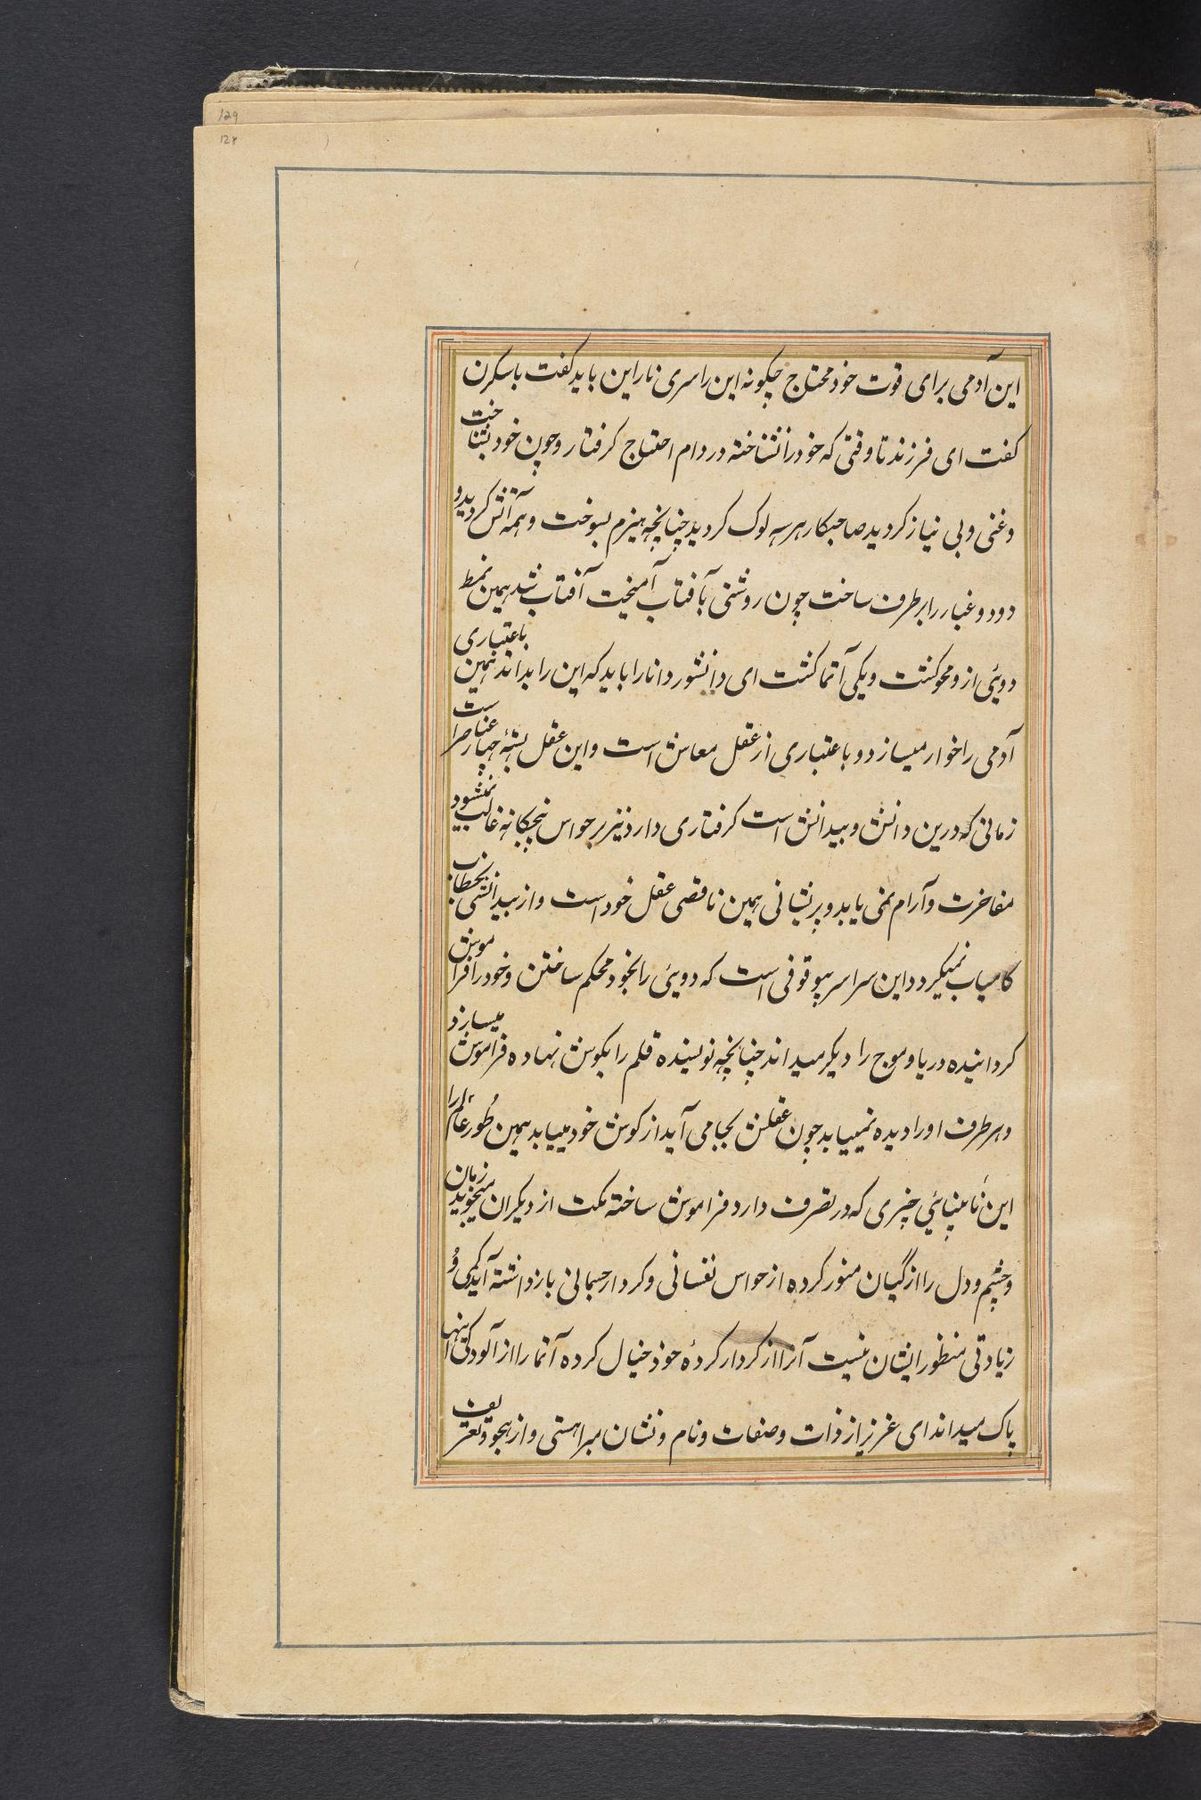 129
128
این آدمی برای قوت خود محتاج چکونه این را سری ناراین باید کفت باسکرن
کفت ای فرزند تا وقتی که خود را نشناخته در دام احتیاج کرفتار و چون خود بشناخت
و غنی و بی نیاز کردید صاحبکار هر سه لوک کردید چنانچه هیزم بسوخت و همه آتش کردید و
دود و غبار را بر طرف ساخت چون روشنی بآفتاب آمیخت آفتاب شد همین نمط
دوئی ازو محو کشت و یکی آتما کشت ای دانشور دانا را باید که این را بداند همین باعتباری
آدمی را خوار میسازد و باعتباری از عقل معاش است و این عقل بستهٔ چهار عناصر است
زمانی که درین دانش و بیدانش است کرفتاری دارد نیز بر حواس پنچکانه غالب نمیشود
مفاخرت و آرام نمی یابد و پریشانی همین ناقصی عقل خود است و از بیدانشی بخطاب
کامیاب نمیکردد این سراسر بیوقوفی است که دوئی را بخود محکم ساختن و خود را فراموش
کردانیده دریا و موج را دیکر میداند چنانچه نویسنده قلم را بکوش نهاده فراموش میسازد
و هر طرف او را دیده نمییابد چون عقلش بجا می آید از کوش خود مییابد همین طور عالم را
این نابینائی چیزی که در تصرف دارد فراموش ساخته مکت از دیکران میجوید زمان
و چشم و دل را از گیان منور کرده از حواس نفسانی و کردار جسمانی باز داشته آید کمی و
زیادتی منظور ایشان نیست آنرا از کردار کردهٔ خود خیال کرده آتما را از آلودکی اینها
پاک میداند ای عزیز از ذات و صفات و نام و نشان مبرا هستی و از هجو و تعریف